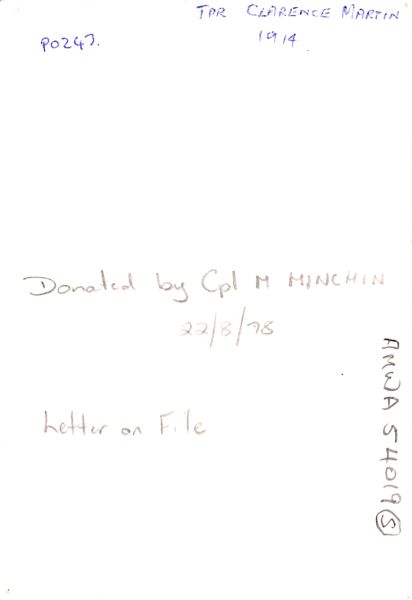 TPR CLARENCE MARTIN
1914
PO247.
Donated by Cpl M MINCHIN
22/8/78
Letter on File
AMWA 54019 (S)